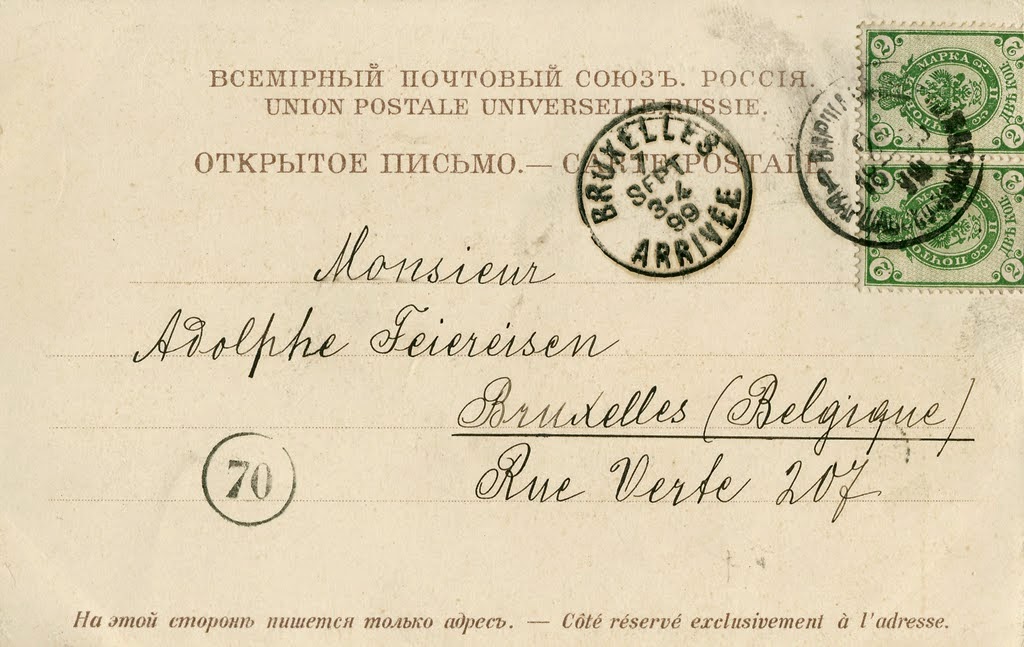 ВСЕМІРНЫЙ ПОЧТОВЫЙ СОЮЗЪ. РОССІЯ.
UNION POSTALE UNIVERSELLE RUSSIE.
ОТКРЫТОЕ ПИСЬМО.— CARTE POSTALE
BRUXELLES
1
SEPT
3-4
99
ARRIVÉE
2 МАРКА 2
2 2
2 2
Monsieur
Adolphe Feiereisen
Bruxelles (Belgique)
Rue Verte 207
70
На этой сторонѣ пишется только адресъ. — Côté réservé exclusivement à l'adresse.